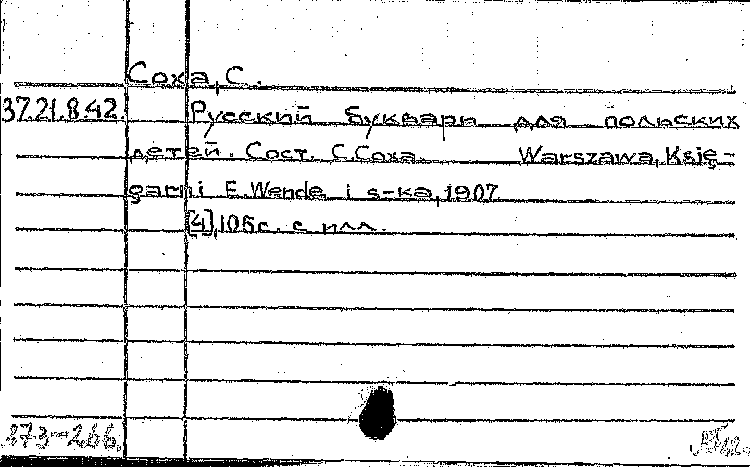 Соха, С.
37.21.8.42. Русский букварь для польских
детей. Сост. С.Соха. Warszawa, Księ-
garni E.Wende i s-ka, 1907
[4], 106с. с илл.
273-266.